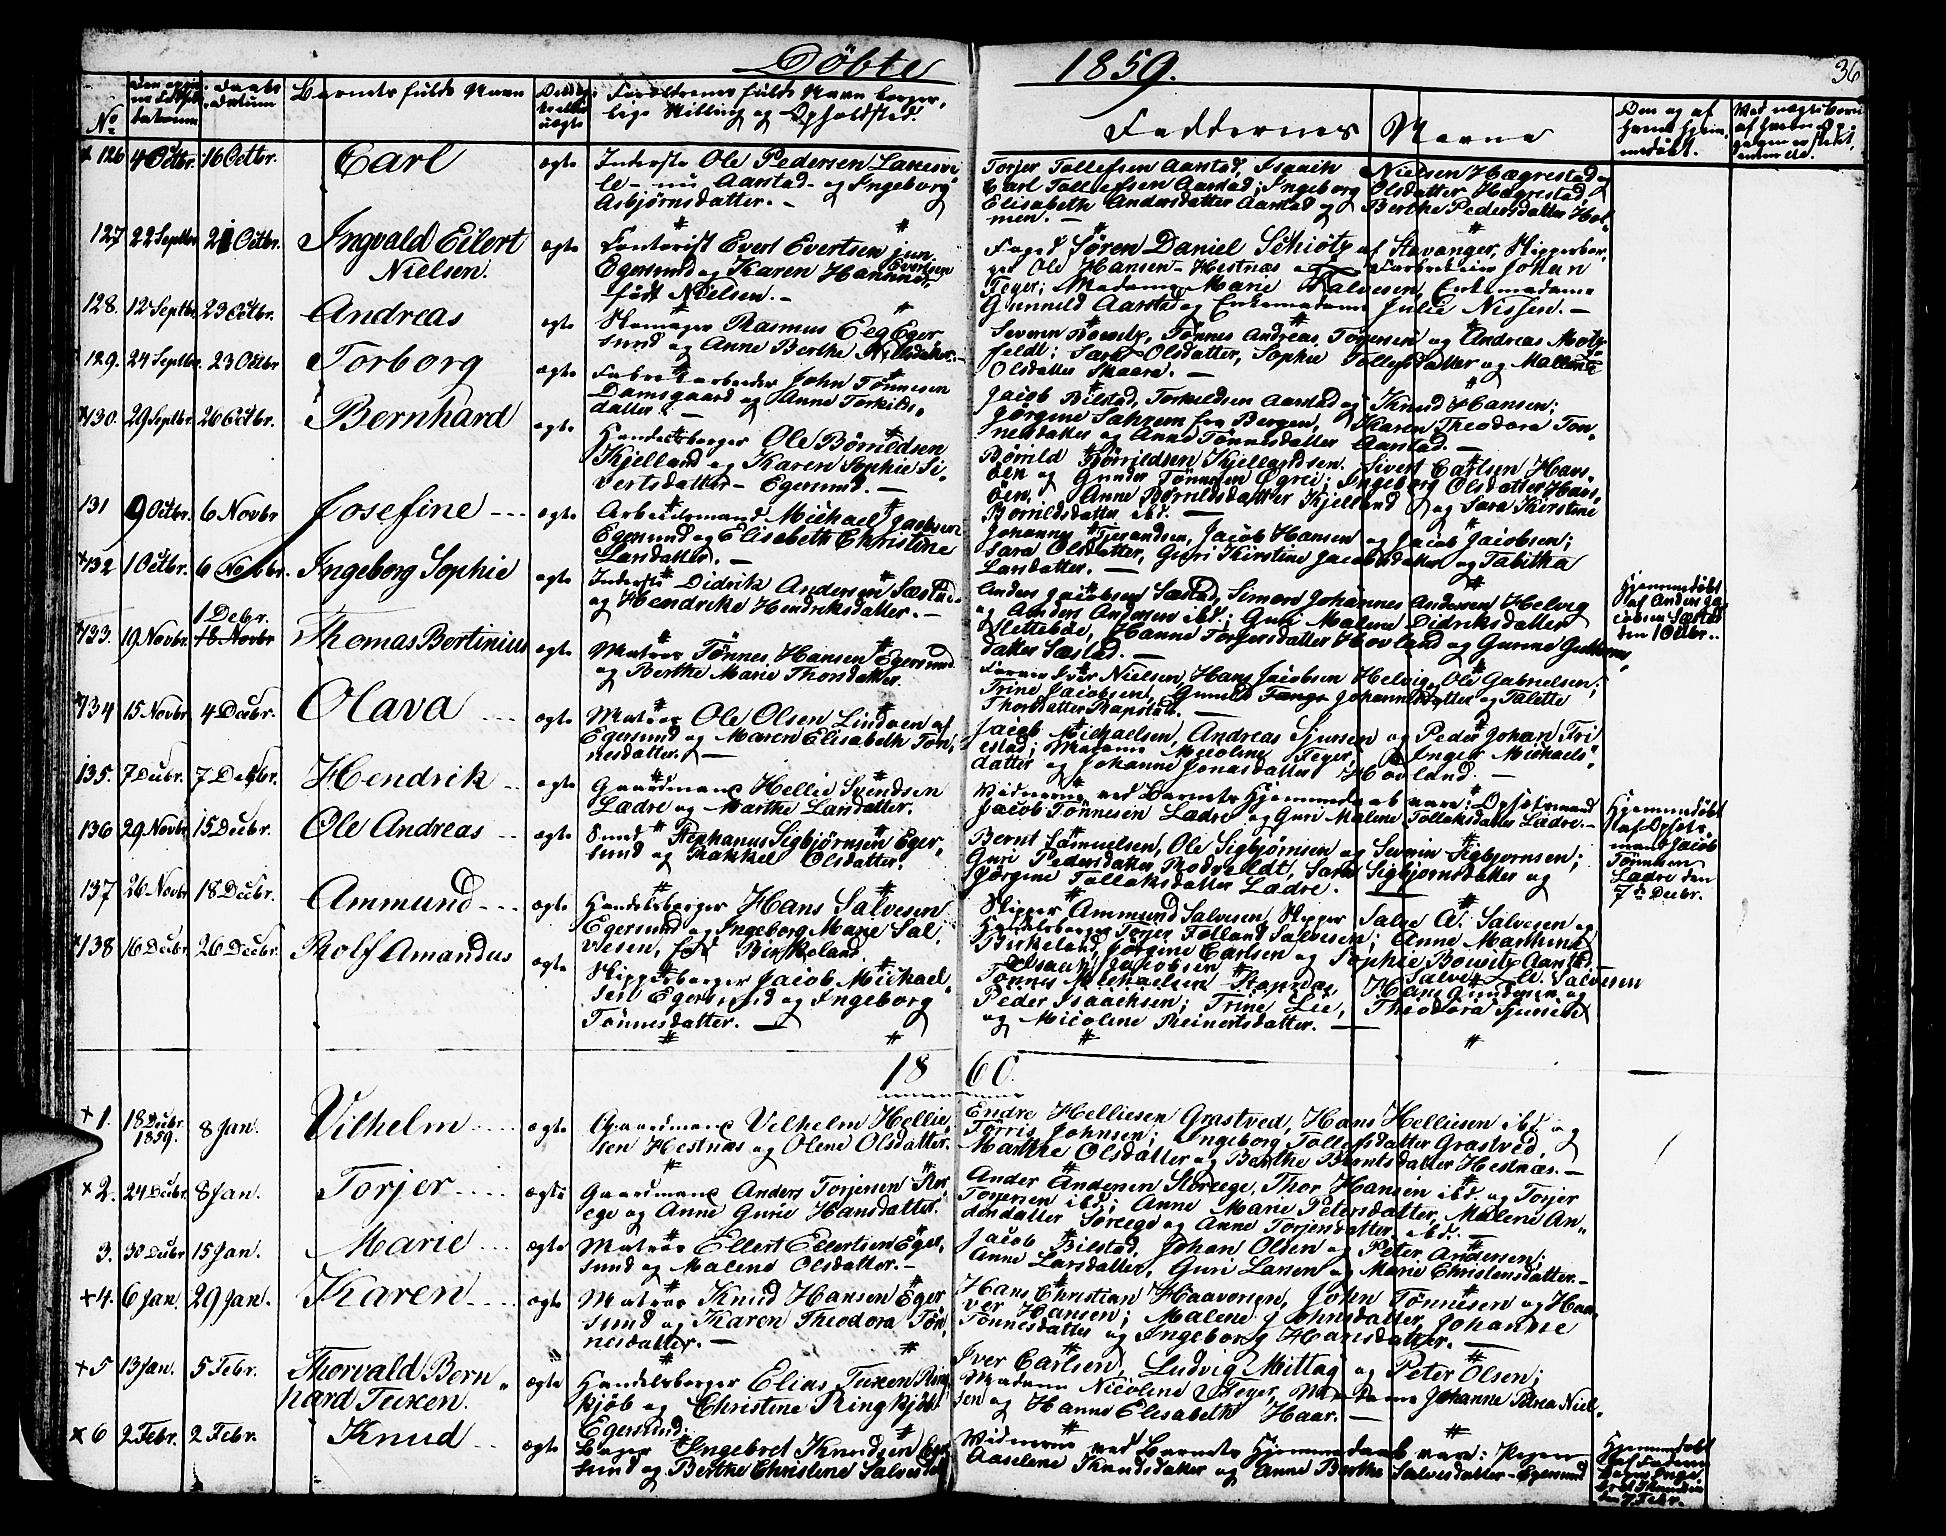 Döbte 1859.
36
No
Barnets fulde Navn
Forældrenes fulde Navn borger,
lige Stilling og Opholdsted.
Faddernes Navne
126 4 Octbr. 16 Octbr. Carl ægte Inderste Ole Pedersen Lanesvi,
le nu Aarstad og Ingeborg
Asbjørnsdatter.
Torjer Tollefsen Aarstad, Isaach Nielsen Hægrestad,
Carl Tollefsen Aarstad; Ingeborg Olsdatter Hægrestad,
Elisabeth Andersdatter Aarstad og Berthe Pedersdatter Hol-
men.
127 22 Septbr. 21 Octbr. Ingvald Eilert
Nielsen.
ægte Contorist Evert Evertsen jun.
Egersund og Karen Hanne Evertsen
født Nielsen.
Foged Søren Daniel Schiötz af Stavanger, Skipperbor-
ger Ole Hansen Hestnæs Johan
Feyer; Madame Marie Salvesen, Enkemadame
Gunnild Aarstad og Enkemadame Julie Nissen.
128. 12 Septbr. 23 Octbr. Andreas ægte Skomager Rasmus Eeg Eger
sund og Anne Berthe Nilsdatter.
Severin Bowitz, Tönnes Andreas Torjersen og Andreas Motz-
feldt; Sara Olsdatter, Sophie Tollefsdatter og Mallene
Olsdatter Skaara.
129. 24 Septbr. 23 Octbr. Torborg ægte Fabrikarbeider John Tönnesen
Damsgaard og Anne Torkilds-
datter.
Jacob Bilstad, Torkildsen Aarstad og Knud Hansen;
Jörgine Sahrem fra Bergen, Karen Theodora Ton-
nesdatter og Anne Tönnesdatter Aarstad.
130. 29 Septbr. 26 Octbr. Bernhard ægte Handelsborger Ole Börrildsen
Kjelland og Karen Sophie Si-
vertsdatter Egersund.
Börrild Börrildsen Kjellandsen. Sivert Carlsen Havs-
öen og Gunder Tönnesen Ögrei; Ingeborg Olsdatter Havs-
öen, Anne Börrildsdatter Kjelland og Sara Kirstine
Börrildsdatter ibd.
131 9 Octbr. 6 Novbr Josefine ægte Arbeidsmand Michael Jacobsen
Egersund og Elisabeth Christine
Larsdatter.
Johannes Tjerandsen, Jacob Hansen og Jacob Jacobsen;
Sara Olsdatter, Guri Kirstine Jacobsdatter og Tabitha
Larsdatter.
132 1 Octbr. 6 Novbr. Ingeborg Sophie ægte Inderste Didrik Andersen Sæstad
og Hendrikke Hendriksdatter.
Anders Jacobsen Sæstad, Simon Johannes Andersen Helvig
og Anders Andersen ibd.; Guri Malene Didriksdatter
Slettebøe, Hanne Torgersdatter Hovland og Gurine Guttorms-
datter Sæstad.
Hjemmedöbt
af Anders Ja-
cobsen Sæstad
den 1 Octbr.
133. 19 Novbr. 1 Debr.
18 Novbr Thomas Bertinius ægte Matros Tönnes Hansen Egersund
og Berthe Marie Thorsdatter.
Iver Nielsen, Hans Jacobsen Helvig, Ole Gabrielsen;
Trine Jacobsen, Gunild Tange Johannesdatter og Talette
Thorsdatter Rapstad.
134 15 Novbr 4 Decbr. Olava ægte Matros Ole Olsen Lindöen af
Egersund og Maren Elisabeth Tön-
nesdatter.
Jacob Michaelsen, Andreas Sjursen og Peder Johan Tri
estad; Madame Nicoline Feyer, Inger Michaels-
datter og Johanne Jonasdatter Hovland.
135. 7 Decbr. 7 Decbr. Hendrik ægte Gaardmand Hellie Svendsen
Ladre og Marthe Larsdatter.
Vidnerne ved Barnets Hjemmedaab vare: Opsitsmand
Jacob Tönnesen Ladre og Guri Malene Tollaksdatter Ladre.
Hjemmedöbt
af Opsits-
mand Jacob
Tönnesen
Ladre den
7de Decbr.
136 29 Novbr 15 Decbr. Ole Andreas ægte Smed Stephanus Sigbjörnsen Eger,
sund og Rakkel Olsdatter.
Bernt Samuelsen, Ole Sigbjörnsen og Severin Sigbjornsen;
Guri Pedersdatter Rodvseldt, Sara Sigbjornsdatter og
Jörgine Tollaksdatter Ladre.
137 26 Novbr 18 Decbr. Ammund ægte Handelsborger Hans Salvesen
Egersund og Ingeborg Marie Sal,
vesen, född Birkeland.
Skipper Ammund Salvesen, Skipper Salve A. Salvesen og
Handelsborger Torjer Folland Salvesen; Anne Marthine
Birkeland, Jörgine Carlsen og Sophie Bowitz Aarstad
138 16 Decbr 26 Decbr. Rolf Amandus ægte Skipperborger Jacob Michael-
sen Egersund og Ingeborg
Tönnesdatter.
Isaach Jacobsen Salve L. Salvesen
Tönnes Michaelsen Stapnæs, Hans Gundersen og
Peder Isaachsen; Trine Lie, Theodora Sjursen
og Nicoline Reinertsdatter.
1860.
1. 18 Decbr.
1859. 8 Jan. Vilhelm ægte Gaardmand Vilhelm Hellie,
sen Hestnæs og Olene Olsdatter.
Endre Helliesen Grastved, Hans Helliesen ibd. og
Törris Johnsen; Ingeborg Tollefsdatter Grastved,
Marthe Olsdatter og Berthe Berntsdatter Hestnæs.
2. 24 Decbr 8 Jan. Torjer ægte Gaardmand Anders Torjersen Sor-
ege og Anne Gurie Hansdatter.
Ander Andersen Storeege, Thor Hansen ibd. og Torjer
Torjersen ibd; Anne Marie Petersdatter, Malene An-
dersdatter Soreege og Anne Torjersdatter ibd.
3. 30 Decbr 15 Jan. Marie ægte Matros Ellert Eilertsen Eger,
sund og Malene Olsdatter.
Jacob Bilstad, Johan Olsen og Peter Andersen;
Anne Larsdatter, Guri Larsen og Marie Christensdatter.
4. 6 Jan. 29 Jan. Karen ægte Matros Knud Hansen Eger
sund og Karen Theodora Tön-
nesdatter.
Hans Christian Haaversen, John Tönnesen og Haa-
ver Hansen; Malene Johnsdatter, Johanne
Tönnesdatter og Ingeborg Hansdatter.
5 13 Jan. 5 Febr. Thorvald Bern-
hard Tuxen. ægte Handelsborger Elias Tuxen Ring
kjöb og Christine Ringkjöb
Egersund.
Iver Carlsen, Ludvig Mittag og Peter Olsen;
Madam Nicoline Feyer, Madame Johanne Petrea Niel-
sen og Hanne Elisabeth Haar.
6 2 Febr. 2 Febr. Knud ægte Borger Ingebret Knudsen Eger
sund og Berthe Christine Salvesdtr
Vidnerne ved Barnets Hjemmedaab vare: Pigen
Aaselene Knudsdatter og Anne Berthe Salvesdatter Egersund
Hjemmedöbt
af Faderen